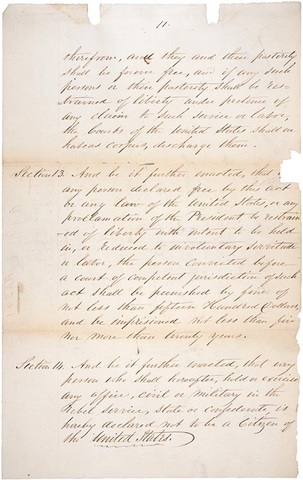 11.
therefrom, and they and their posterity
shall be forever free, and if any such
persons or their posterity shall be res-
trained of liberty under pretence of
any claim to such service or labor,
the Courts of the United States shall on
habeas corpus, discharge them.
Section 13. And be it further enacted, that if
any person declared free by this act
be any law of the United States, or any
proclamation of the President be restrain-
ed of liberty with intent to be held
in, or reduced to involuntary Servitude
or labor, the person convicted before
a court of competent jurisdiction of such
act shall be punished by fine of
not less than fifteen Hundred Dollars
and be imprisoned not less than five
Nor more than twenty years.
Section 14. And be it further enacted, that every
person who shall hereafter, hold or exercise
any office, civil or military in the
Rebel Service, State or confederate, is
hereby declared not to be a Citizen of
the United States.